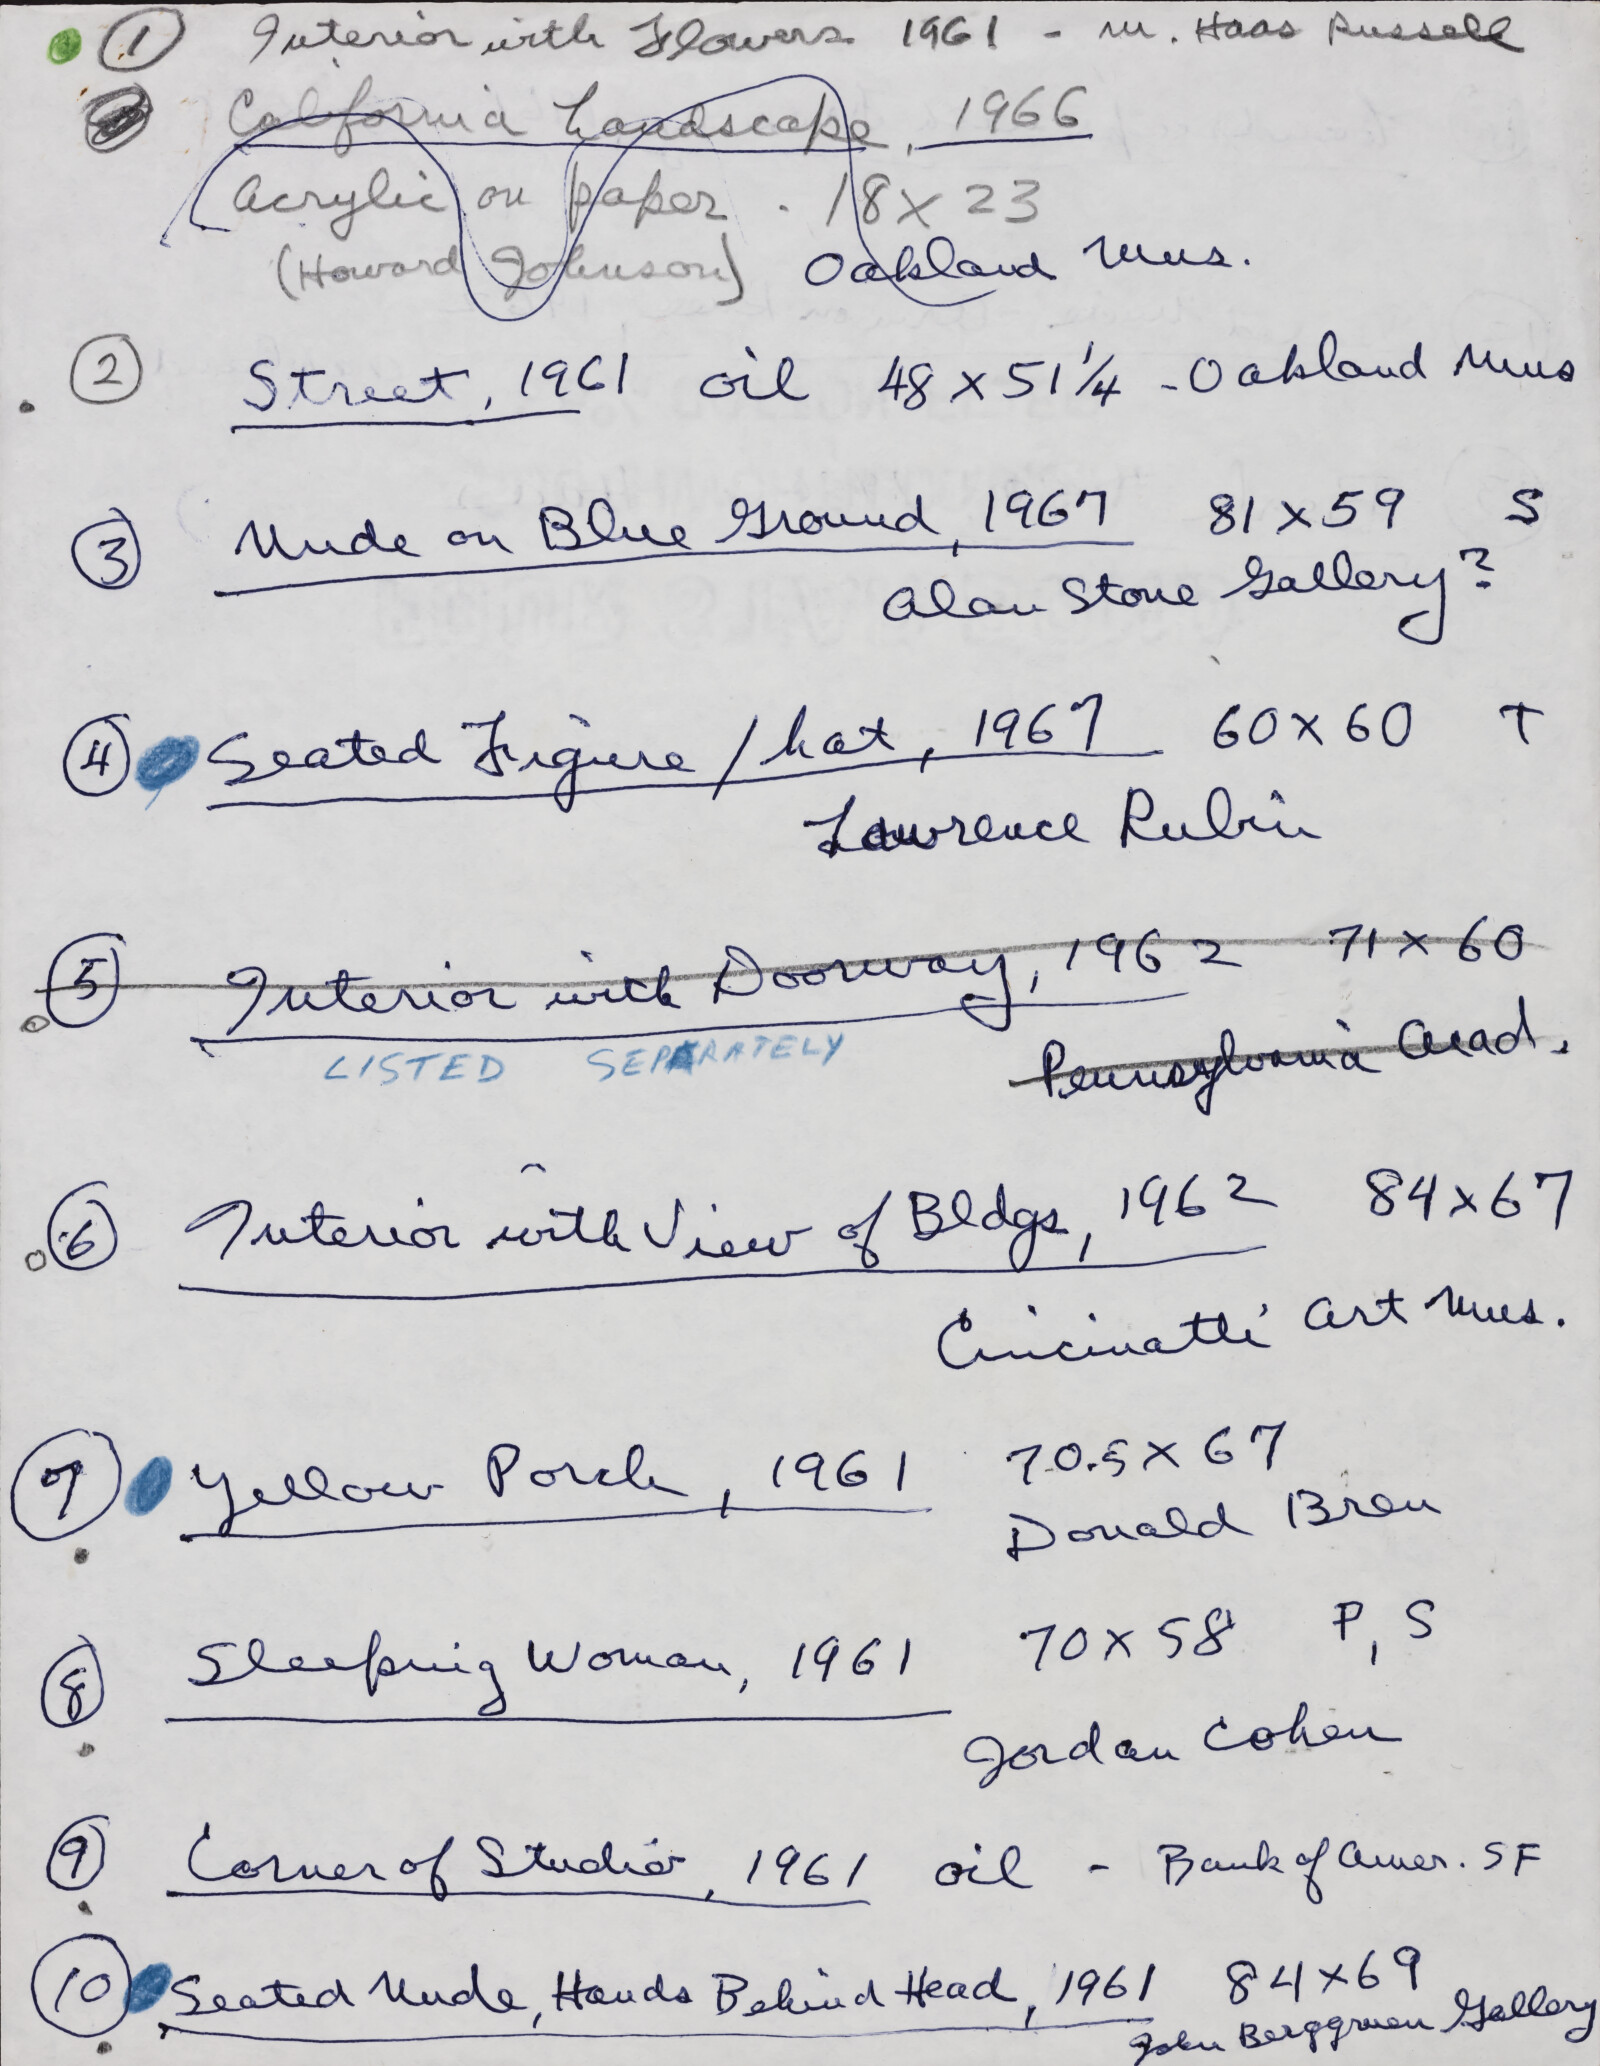 1 Interior with Flowers 1961 - M. Haas Russell
California Landscape, 1966
Acrylic on paper. 18 x 23
(Howard Johnson) Oakland Mus.
2 Street, 1961 oil 48 x 51 1/4 - Oakland Mus
3 Nude on Blue Ground, 1967 81 x 59 S
Alan Stone Gallery?
4 Seated Figure / hat, 1967 60 x 60 T
Lawrence Rubin
5 Interior with Doorway, 1962 71 x 60
LISTED SEPARATELY Pennsylvania Acad.
6 Interior with View of Bldgs, 1962 84 x 67
Cincinatti Art Mus.
7 Yellow Porch, 1961 70.5 x 67
Donald Bren
8 Sleeping Woman, 1961 70 x 58 P, S
Jordan Cohen
9 Corner of Studio, 1961 oil - Bank of Amer. SF
10 Seated Nude, Hands Behind Head, 1961 84 x 69
John Berggruen Gallery